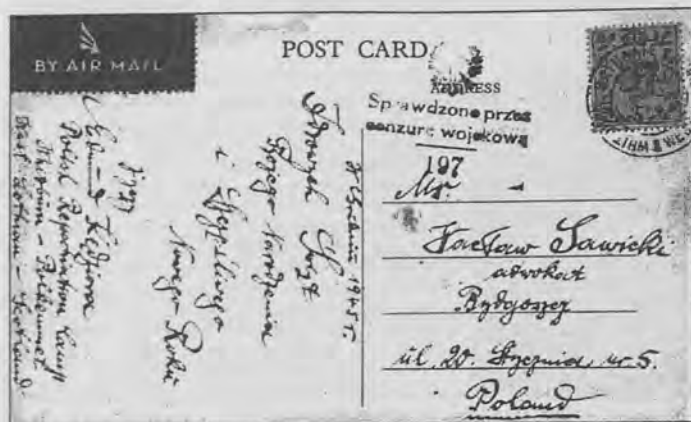 BY AIR MAIL
POST CARD
ADDRESS
Sprawdzone przez
cenzurę wojskową
197
Mr.
Wacław Sawicki
adwokat
Bydgoszcz
ul. 20. Stycznia nr 5.
Poland
1945 r.
Zdrowych Świąt
Bożego Narodzenia
i Szczęśliwego
Nowego Roku
życzy
Edmund
Polish Repatriation Camp
East Lothian - Scotland